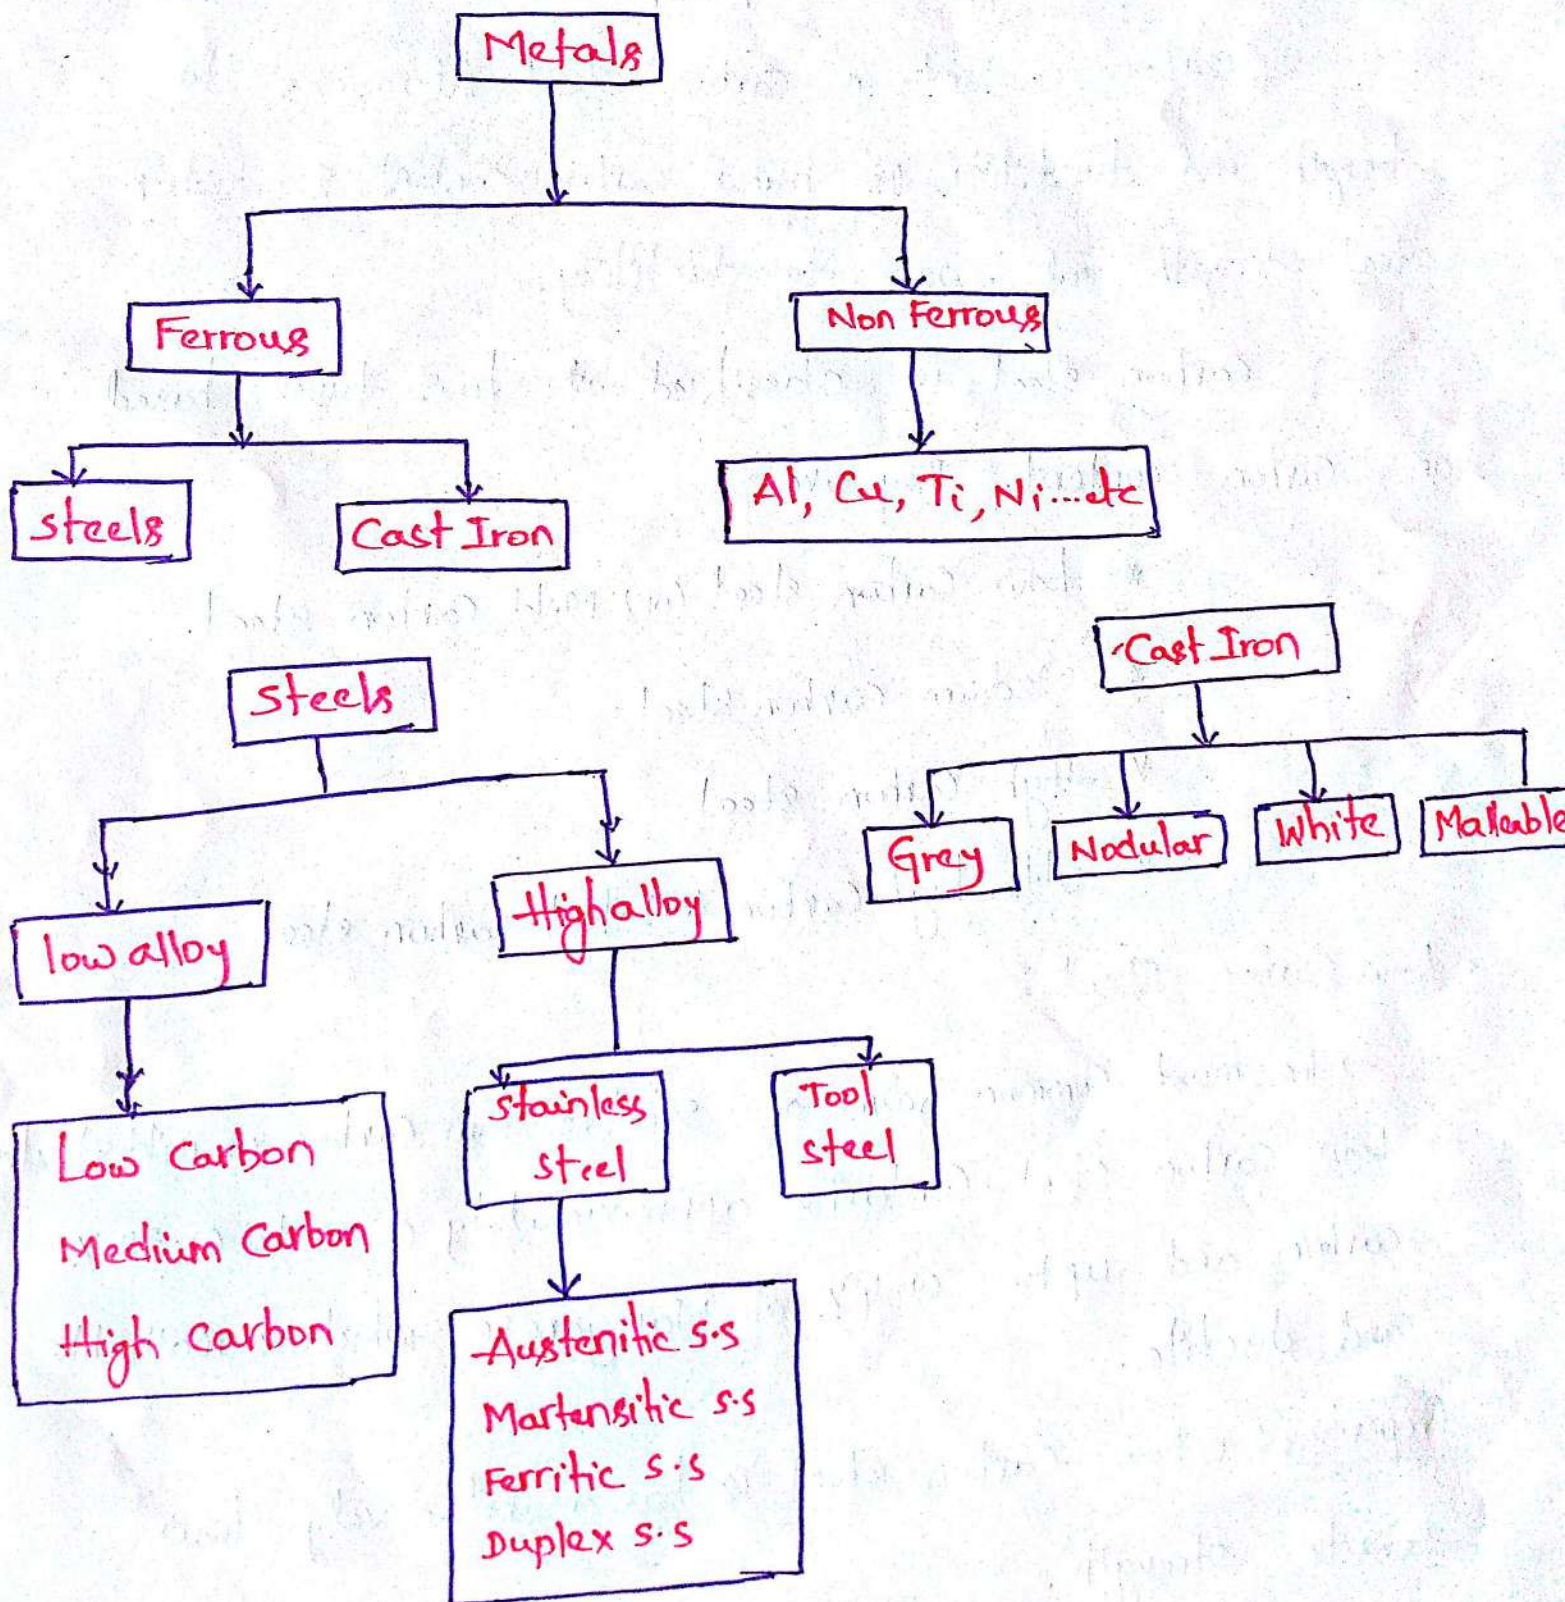 Metals
Ferrous
Non Ferrous
steels
Cast Iron
Al, Cu, Ti, Ni...etc
Steels
Cast Iron
Grey
Nodular
White
Malleable
low alloy
High alloy
Low Carbon
Medium Carbon
High carbon
stainless
steel
Tool
steel
Austenitic s.s
Martensitic s.s
Ferritic s.s
Duplex s.s